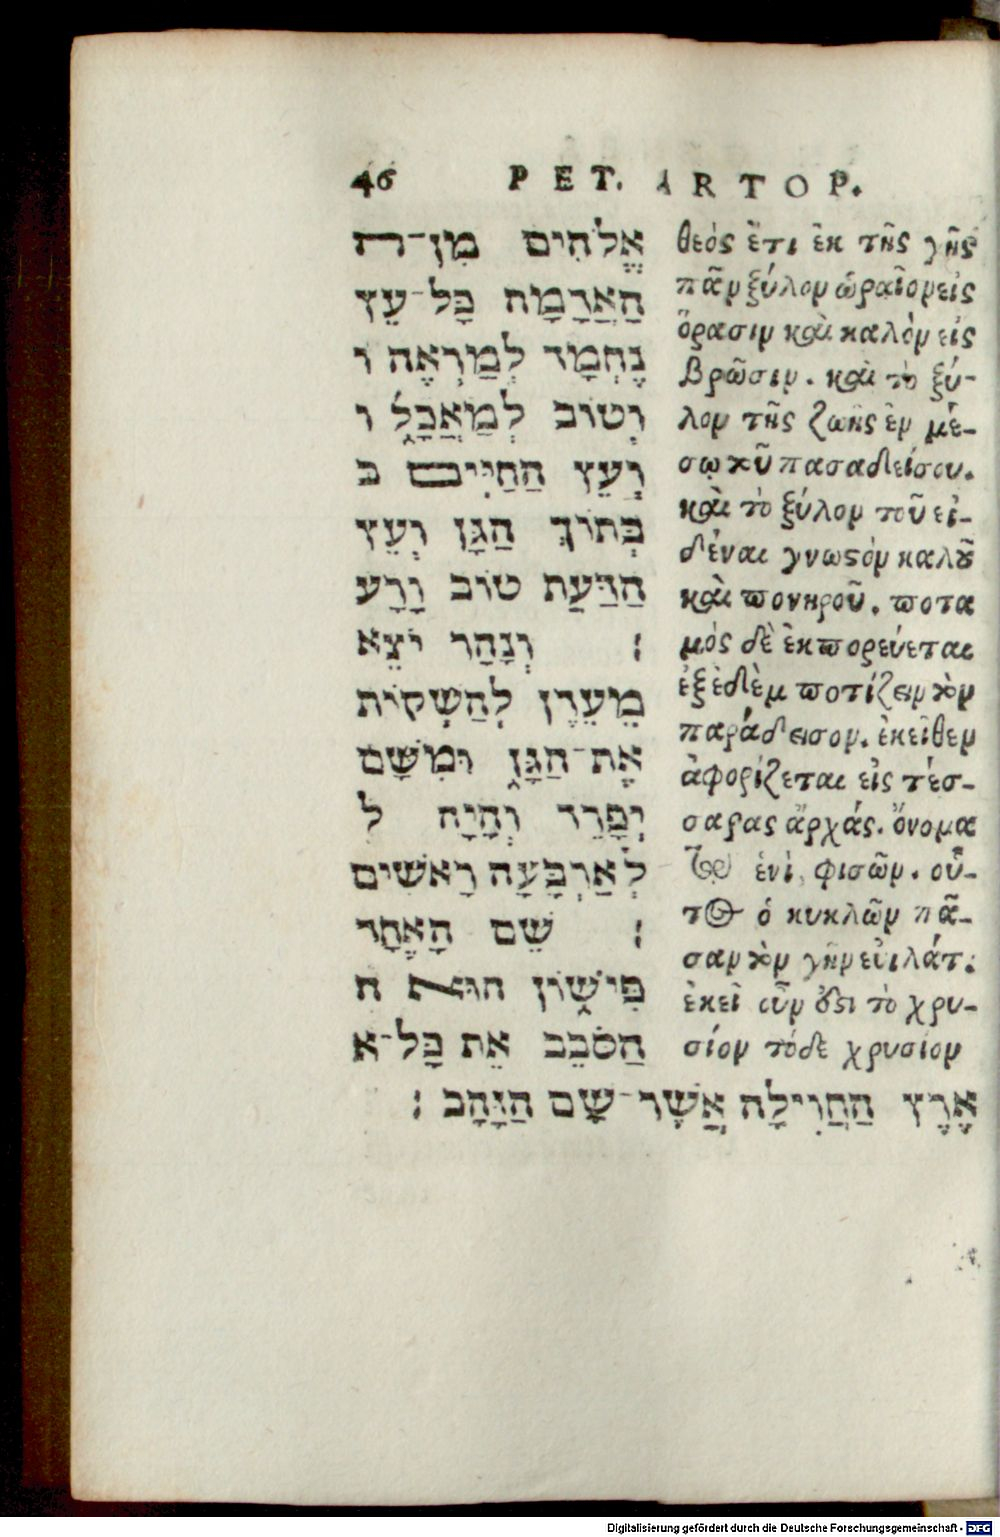 46 PET. ARTOP.
אֱלֹהִים מִן־ה
הָאֲדָמָה כָּל־עֵץ
נֶחְמָד לְמַרְאֶה ו
וְטוֹב לְמַאֲכָל ו
וְעֵץ הַחַיִּים ב
בְּתוֹךְ הַגָּן וְעֵץ
הַדַּעַת טוֹב וָרָע
׃ וְנָהָר יֹצֵא
מֵעֵדֶן לְהַשְׁקוֹת
אֶת־הַגָּן וּמִשָּׁם
יִפָּרֵד וְהָיָה לְ
לְאַרְבָּעָה רָאשִׁים
׃ שֵׁם הָאֶחָד
פִּישׁוֹן הוּא ה
הַסֹּבֵב אֵת כָּל־א
אֶרֶץ הַחֲוִילָה אֲשֶׁר־שָׁם הַזָּהָב ׃
θεὸς ἔτι ἐκ τῆς γῆς
πᾶν ξύλον ὡραῖον εἰς
ὅρασιν καὶ καλὸν εἰς
βρῶσιν. καὶ τὸ ξύ-
λον τῆς ζωῆς ἐν μέ-
σῳ τοῦ πασαδείσου.
καὶ τὸ ξύλον τοῦ εἰ-
δέναι γνωστὸν καλοῦ
καὶ πονηροῦ. ποτα
μὸς δὲ ἐκπορεύεται
ἐξ ἐδὲμ ποτίζειν τὸν
παράδεισον. ἐκεῖθεν
ἀφορίζεται εἰς τέσ-
σαρας ἀρχάς. ὄνομα
τῷ ἑνὶ φισῶν. οὗ-
τος ὁ κυκλῶν πᾶ-
σαν τὴν γῆν εὐιλάτ:
ἐκεῖ οὗν ὅστι τὸ χρυ-
σίον τόδε χρυσίον
Digitalisierung gefördert durch die Deutsche Forschungsgemeinschaft - DFG